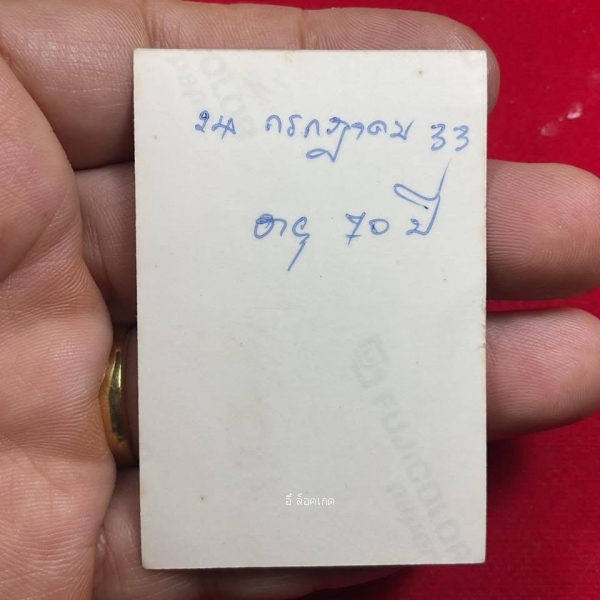 24 กรกฎาคม 33
อายุ 70 ปี
FUJICOLOR
Paper
อี๊ ล็อคเกต